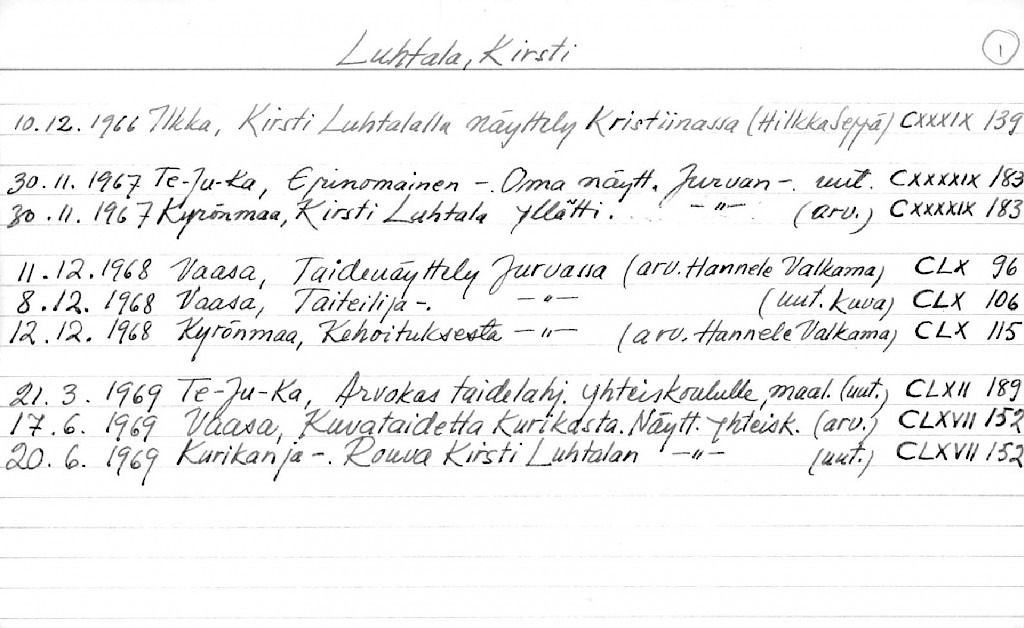 Luhtala, Kirsti 1
10.12. 1966 Ilkka, Kirsti Luhtalalla näyttely Kristiinassa (Hilkka Seppä) CXXXIX 139
30.11. 1967 Te-Ju-Ka, Erinomainen -. Oma näytt. Jurvan -. uut. CXXXXIX 183
30.11. 1967 Kyrönmaa, Kirsti Luhtala yllätti. -"- (arv.) CXXXXIX 183
11.12. 1968 Vaasa, Taidenäyttely Jurvassa (arv. Hannele Valkama) CLX 96
8.12. 1968 Vaasa, Taiteilija -. -"- (uut. kuva) CLX 106
12.12. 1968 Kyrönmaa, Kehoituksesta -"- (arv. Hannele Valkama) CLX 115
21. 3. 1969 Te-Ju-Ka, Arvokas taidelahj. yhteiskoululle, maal. (uut.) CLXII 189
17. 6. 1969 Vaasa, Kuvataidetta Kurikasta. Näytt. yhteisk. (arv.) CLXVII 152
20. 6. 1969 Kurikan ja -. Rouva Kirsti Luhtalan -"- (uut.) CLXVII 152